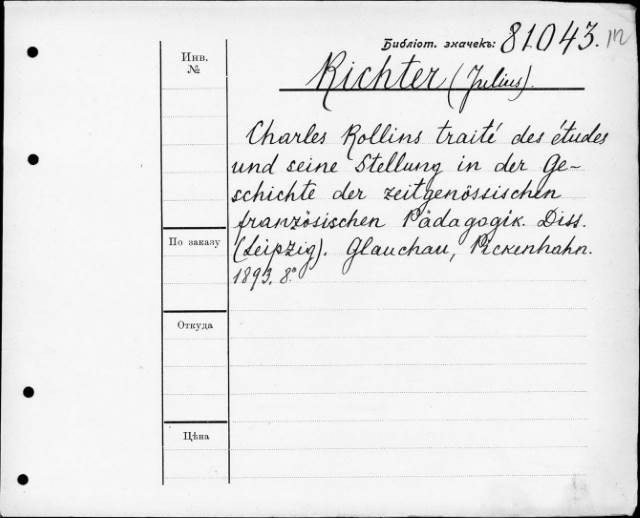 Библіот. значекъ: 81043.
Инв. №
Richter (Julius).
Charles Rollins traité des études
und seine Stellung in der Ge-
schichte der zeitgenössischen
französischen Pädagogik. Diss.
(Leipzig). Glauchau, Pickenhahn.
1893. 8°
По заказу
Откуда
Цѣна